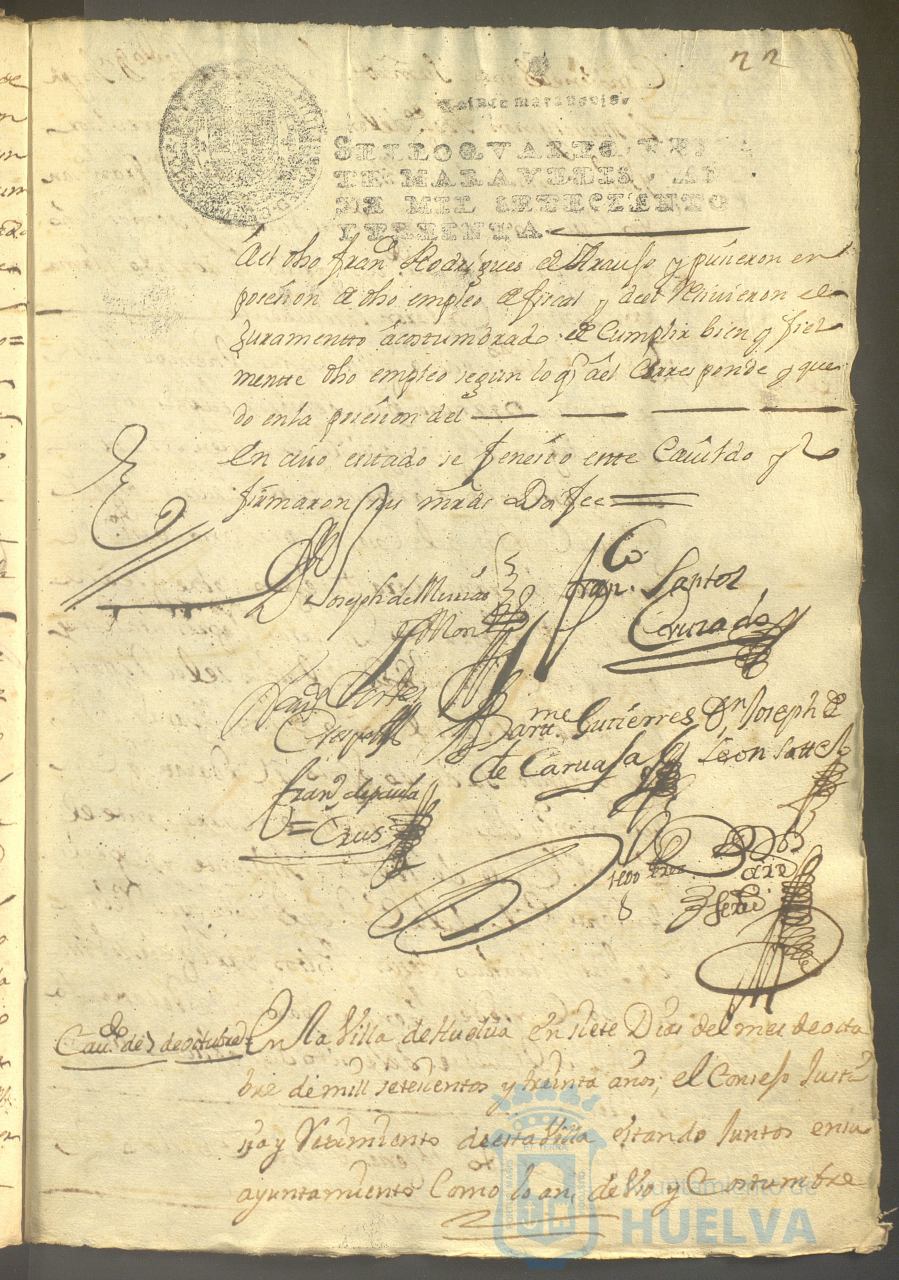 22
Veinte maravedis.
SELLO QVARTO, VEIN
TE MARAVEDIS, AÑO
DE MIL SETECIENTO
Y TREINTA.
Ael dho Fran.co Rodrigues de Araujo y pusieron en
poseſion de dho empleo de fiscal y deel Resiuieron el
Juramentto acostumbrado de Cumplir bien y fiel
mentte dho empleo segun lo q. ael Corresponde y que
do en la poseſion del
En cuio estado se feneſio este Cauildo y
firmaron sus mrds Doi fee
D. Joseph de
Fran.co Santos
Cruzado
Cortes
Bartt.me Gutierres
de Caruajal
D.n Joseph de
Leon
Fran.co de paula
Crus
Cau.do de 7 de octubre
En la Villa de Huelua en siete Dias del mes de octu
bre de mill setesientos y treinta años, el Consejo Justi
sia y Reximiento de esta Villa estando Juntos en su
ayuntamiento Como lo an de Vso y Costumbre
Ayuntamiento de
HUELVA